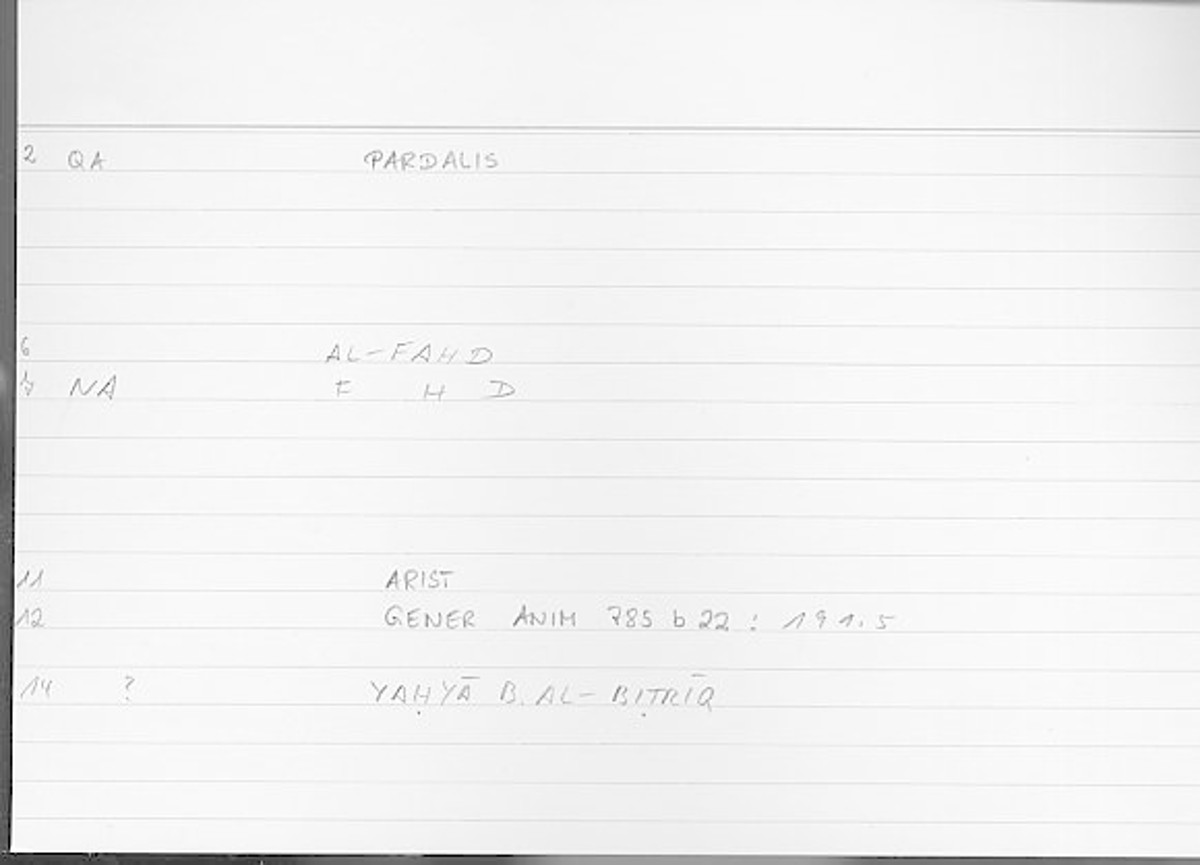 2 QA PARDALIS
6 AL-FAHD
7 NA F H D
11 ARIST
12 GENER ANIM 785 b 22 : 191.5
14 ? YAḤYĀ B. AL-BIṬRĪQ